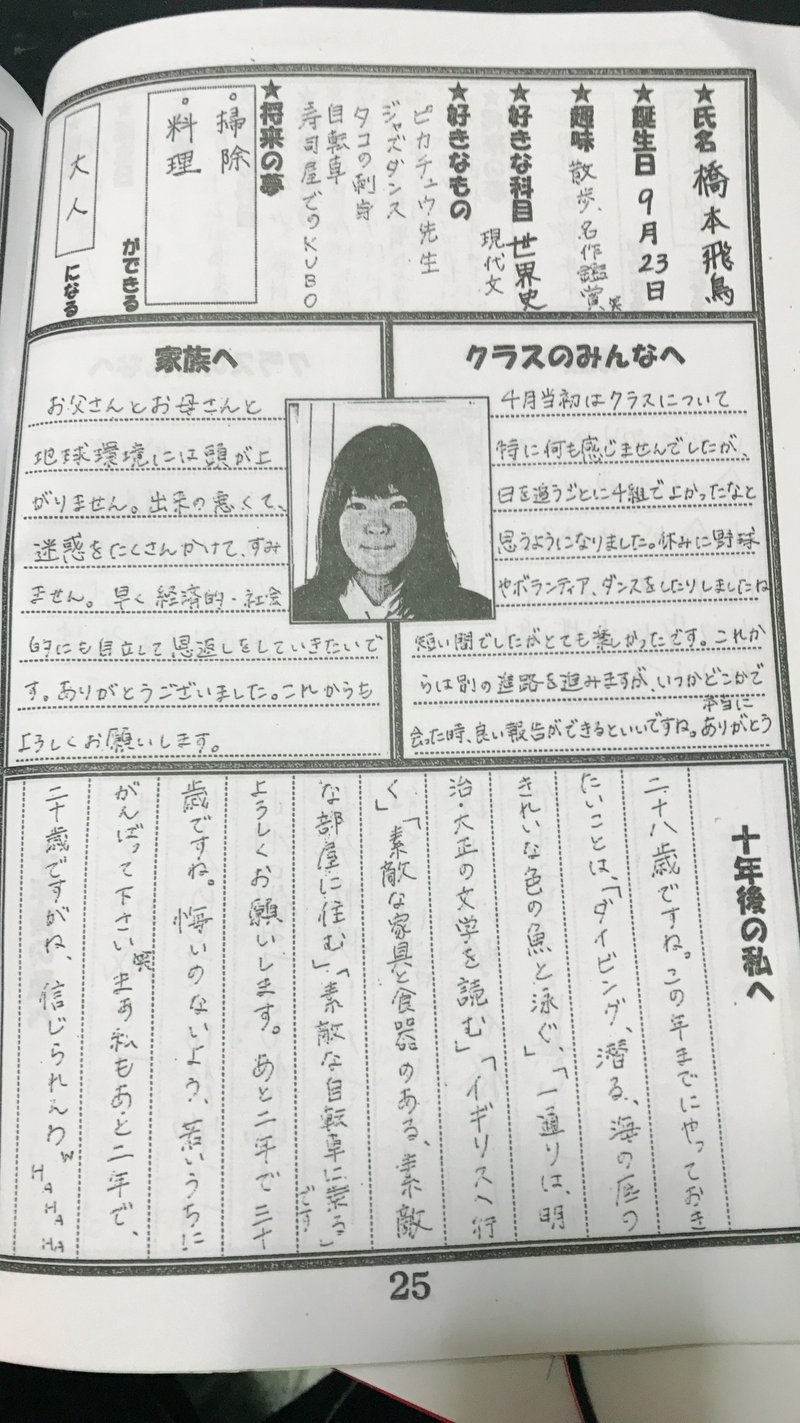 ★氏名 橋本飛鳥
★誕生日 9月23日
★趣味 散歩、名作鑑賞 笑
★好きな科目 世界史
現代文
★好きなもの
ピカチュウ先生
ジャズダンス
タコの刺身
自転車
寿司屋でのKUBO
★将来の夢
。掃除
。料理
ができる
大人
になる
クラスのみんなへ
4月当初はクラスについて
特に何も感じませんでしたが、
日を追うごとに4組でよかったなと
思うようになりました。休みに野球
やボランティア、ダンスをしたりしましたね
短い間でしたがとても楽しかったです。これか
らは別の進路を進みますが、いつかどこかで
会った時、良い報告ができるといいですね。本当にありがとう
家族へ
お父さんとお母さんと
地球環境には頭が上
がりません。出来の悪くて、
迷惑をたくさんかけて、すみ
ません。早く経済的・社会
的にも自立して恩返しをしていきたいで
す。ありがとうございました。これからも
よろしくお願いします。
十年後の私へ
二十八歳ですね。この年までにやっておき
たいことは、「ダイビング、潜る、海の底の
きれいな色の魚と泳ぐ」、「一通りは、明
治・大正の文学を読む」「イギリスへ行
く」「素敵な家具と食器のある、素敵
な部屋に住む」「素敵な自転車に乗る」です
よろしくお願いします。あと二年で三十
歳ですね。悔いのないよう、若いうちに
がんばって下さい。笑 まぁ私もあと二年で、
二十歳ですがね、信じられんわw HAHAHA
25